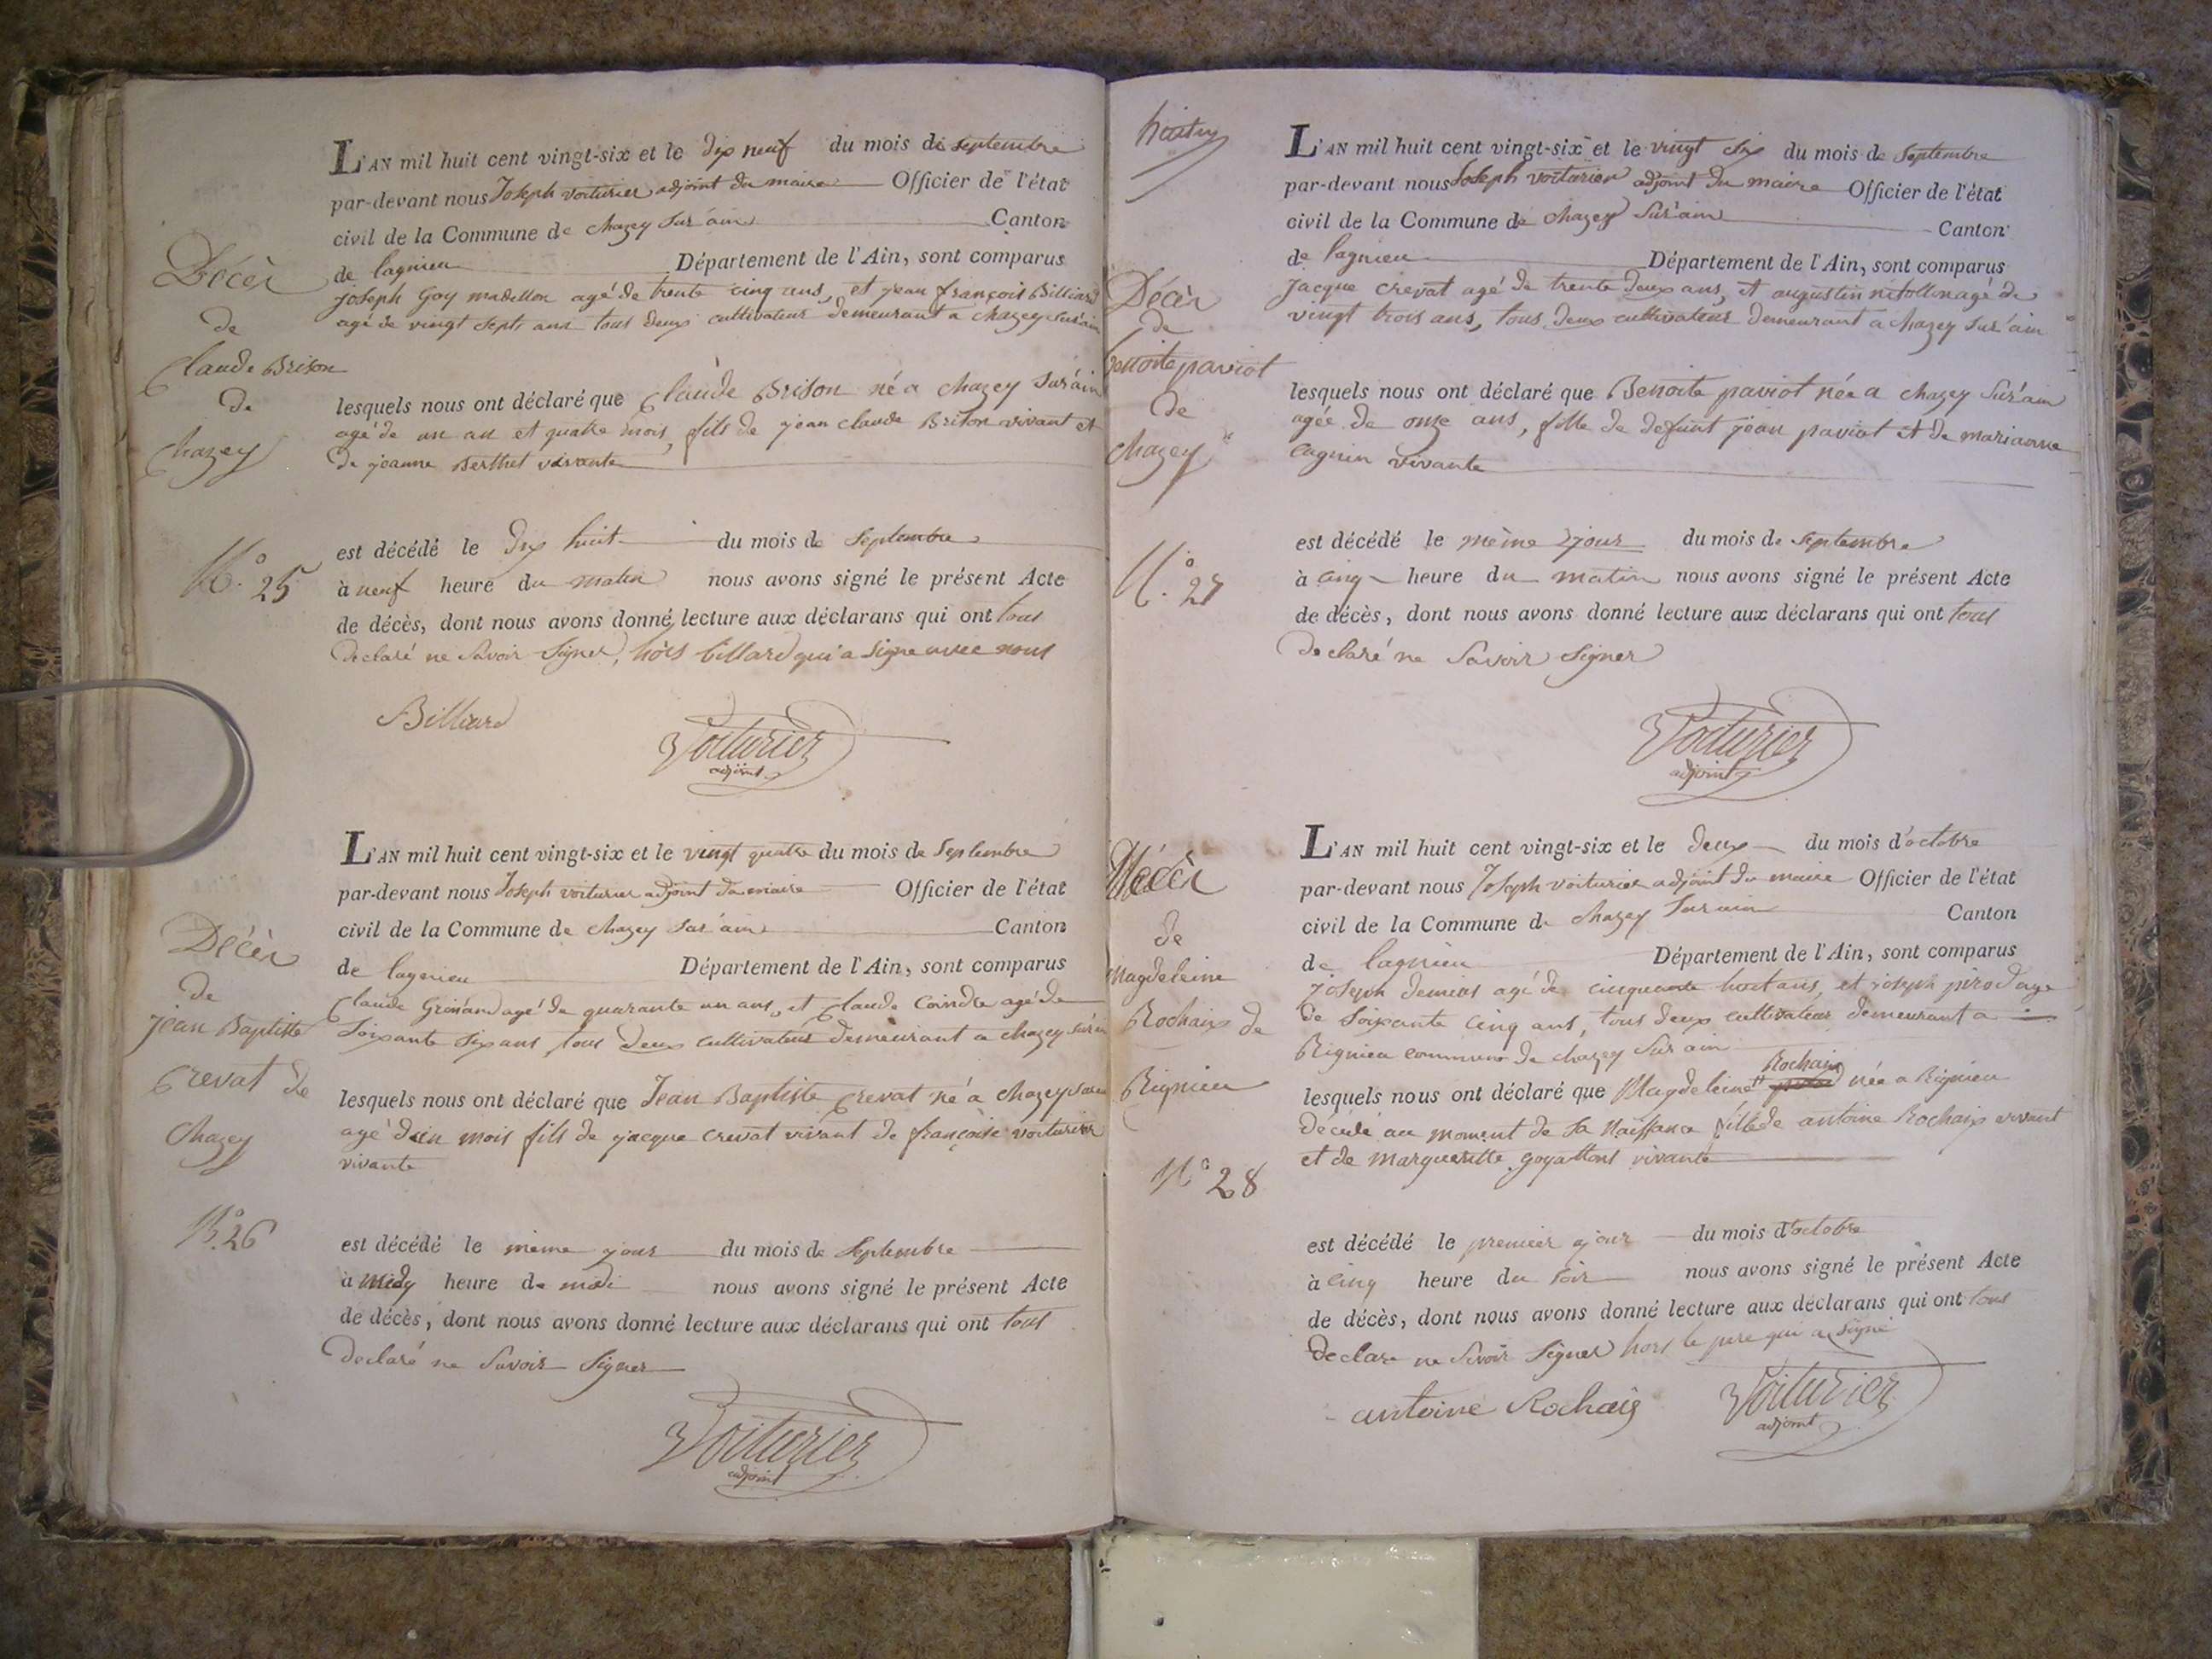 Décès
de
Claude Brison
de
Chazey
N.° 25
L'AN mil huit cent vingt-six et le dix neuf du mois de septembre
par-devant nous Joseph voiturier adjoint du maire Officier de l'état
civil de la Commune de chazey sur ain Canton
de lagnieu Département de l'Ain, sont comparus
joseph Goy madellon agé de trente cinq ans, et jean françois Billiard
agé de vingt sept ans tous deux cultivateur demeurant a chazey sur ain
lesquels nous ont déclaré que Claude Brison né a chazey sur ain
agé de un an et quatre mois, fils de jean claude Brison vivant et
de jeanne Berthet vivante
est décédé le dix huit du mois de septembre
à neuf heure du matin nous avons signé le présent Acte
de décès, dont nous avons donné lecture aux déclarans qui ont tous
declaré ne savoir signer, hors billard qui a signe avec nous
Billiard
Voiturier
adjoint
Décès
de
jean Baptiste
Crevat de
Chazey
N.° 26
L'AN mil huit cent vingt-six et le vingt quatre du mois de septembre
par-devant nous Joseph voiturier adjoint du maire Officier de l'état
civil de la Commune de chazey sur ain Canton
de lagnieu Département de l'Ain, sont comparus
Claude agé de quarante un ans, et Claude Coindre agé de
soixante six ans, tous deux cultivateur demeurant a chazey sur ain
lesquels nous ont déclaré que Jean Baptiste Crevat né a chazey sur ain
agé d'un mois fils de jacque crevat vivant de françoise voiturier
vivante
est décédé le meme jour du mois de septembre
à midy heure de midi nous avons signé le présent Acte
de décès, dont nous avons donné lecture aux déclarans qui ont tous
declaré ne savoir signer
Voiturier
adjoint
Décès
de
benoite paviot
de
chazey
N.° 27
L'AN mil huit cent vingt-six et le vingt six du mois de septembre
par-devant nous Joseph voiturier adjoint du maire Officier de l'état
civil de la Commune de chazey sur ain Canton
de lagnieu Département de l'Ain, sont comparus
jacque crevat agé de trente deux ans, et augustin agé de
vingt trois ans, tous deux cultivateur demeurant a chazey sur ain
lesquels nous ont déclaré que Benoite paviot née a chazey sur ain
agée de onze ans, fille de defunt jean paviot et de marianne
cagnin vivante
est décédé le même jour du mois de septembre
à cinq heure du matin nous avons signé le présent Acte
de décès, dont nous avons donné lecture aux déclarans qui ont tous
declaré ne savoir signer
Voiturier
adjoint
Décès
de
Magdeleine
Rochaix de
Rignieu
N° 28
L'AN mil huit cent vingt-six et le deux du mois d'octobre
par-devant nous Joseph voiturier adjoint du maire Officier de l'état
civil de la Commune de chazey sur ain Canton
de lagnieu Département de l'Ain, sont comparus
joseph agé de cinquante huit ans, et joseph pirod agé
de soixante cinq ans, tous deux cultivateur demeurant a
Rignieu commune de chazey sur ain
Rochaix
lesquels nous ont déclaré que Magdeleine née a Rignieu
décédé au moment de sa naissance fille de antoine Rochaix vivant
et de margueritte goyattont vivante
est décédé le premier jour du mois d'octobre
à cinq heure du soir nous avons signé le présent Acte
de décès, dont nous avons donné lecture aux déclarans qui ont tous
declare ne savoir signer hors le pere qui a signé
antoine Rochaix
Voiturier
adjoint